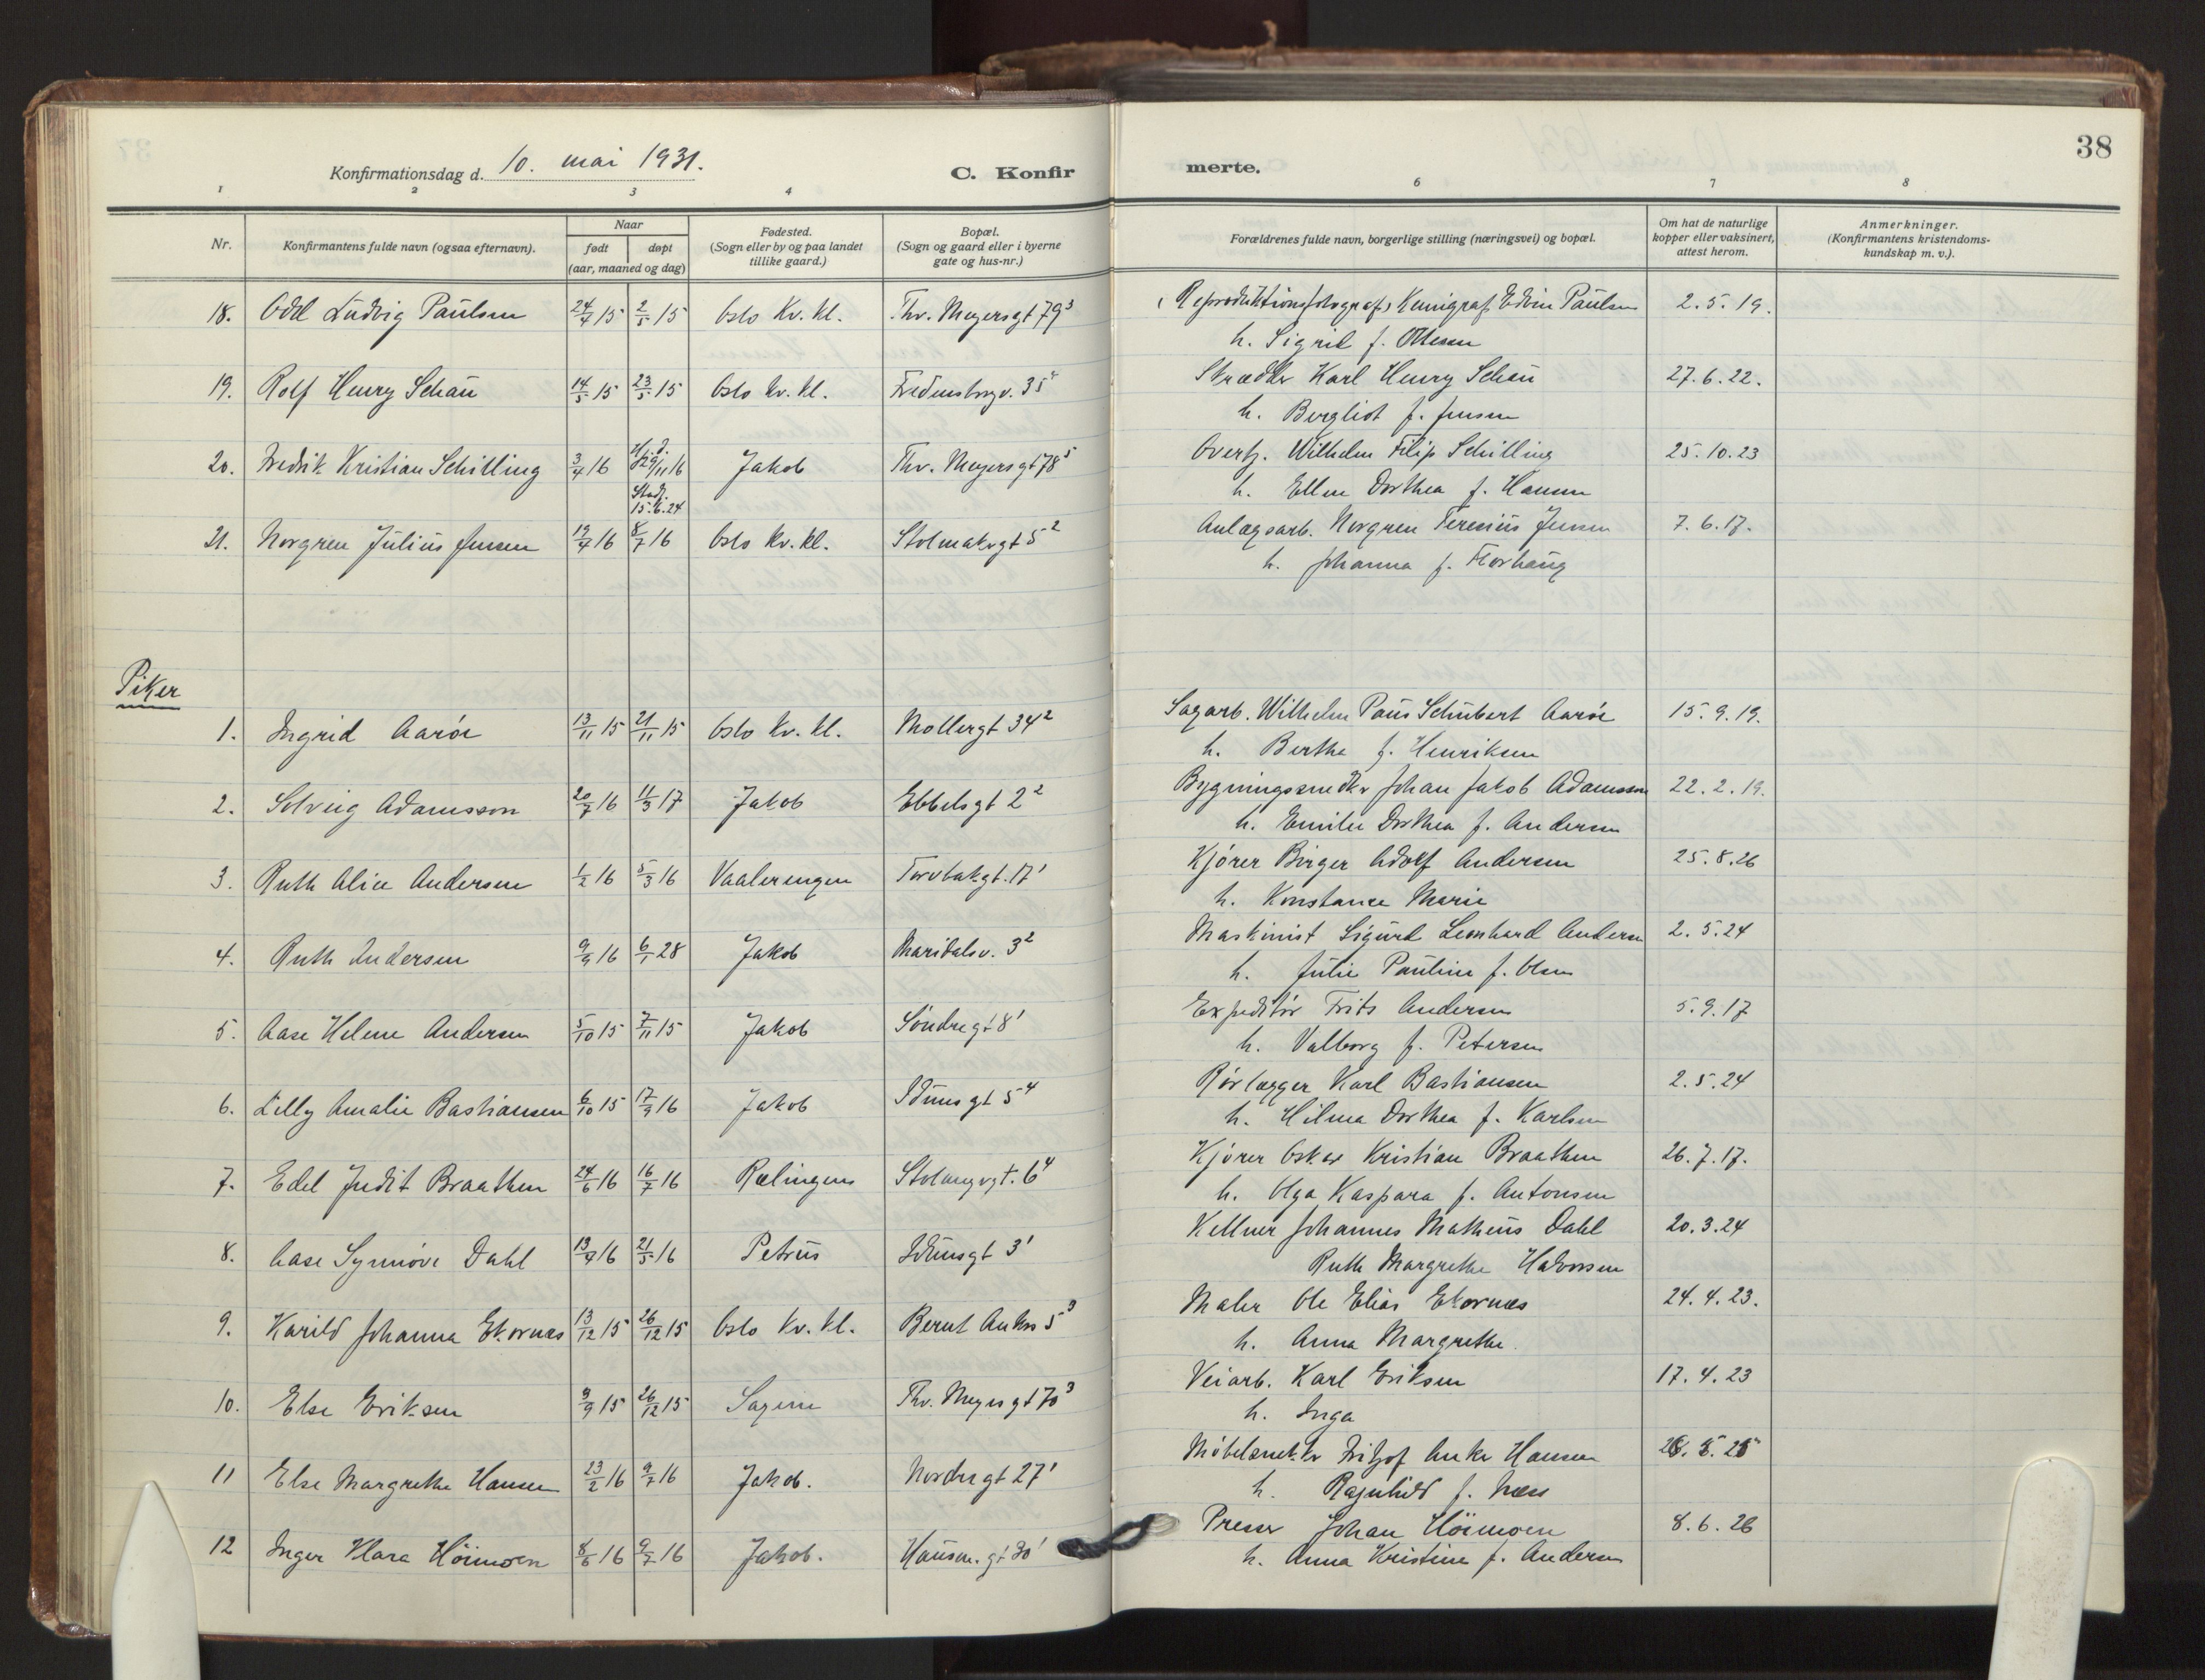 38
Konfirmationsdag d. 10. mai 1931. C. Konfir merte.
1 2 3 4 6 7 8
Nr. Konfirmantens fulde navn (ogsaa efternavn). Naar født døpt (aar, maaned og dag) Fødested. (Sogn eller by og paa landet tillike gaard.) Bopæl. (Sogn og gaard eller i byerne gate og hus-nr.) Forældrenes fulde navn, borgerlige stilling (næringsvei) og bopæl. Om hat de naturlige kopper eller vaksinert, attest herom. Anmerkninger. (Konfirmantens kristendoms-kundskap m. v.).
18. Odd Ludvig Paulsen 24/4 15 2/5 15 Oslo Kv. kl. Thv. Meyersgt 79³ (Reproduktionsfotograf) Kemigraf Edvin Paulsen 2.5.19.
h. Sigrid f. Ottesen
19. Rolf Henry Schau 14/5 15 23/5 15 Oslo kv. kl. Fredensborgv. 35⁴ Skrædder Karl Henry Schau 27.6.22.
h. Bergliot f. Jensen
20. Fredrik Kristian Schilling 3/4 16 Hj.d. 29/11 16 Jakob Thv. Meyersgt 78⁵ Overtj. Wilhelm Filip Schilling 25.10.23
Stadf. 15.6.24 h. Ellen Dorthea f. Hansen
21. Norgren Julius Jensen 19/4 16 8/7 16 Oslo kv. kl. Stolmakergt 5² Anlægsarb. Norgren Teresius Jensen 7.6.17.
h. Johanna f. Florhaug
Piker
1. Ingrid Aarøe 13/11 15 21/11 15 Oslo kv. kl. Møllergt 34² Sagarb. Wilhelm Paus Schubert Aarøe 15.9.19.
h. Berthe f. Henriksen
2. Solveig Adamsson 20/7 16 11/3 17 Jakob Ebbelsgt 2² Bygningssnedker Johan Jakob Adamsson 22.2.19.
h. Emilie Dorthea f. Andersen
3. Ruth Alice Andersen 1/2 16 5/3 16 Vaalerengen Torvbakgt. 17¹ Kjører Birger Adolf Andersen 25.8.26
h. Konstance Marie
4. Ruth Andersen 9/9 16 6/1 28 Jakob Maridalsv. 3² Maskinist Sigurd Leonhard Andersen 2.5.24
h. Julie Pauline f. Olsen
5. Aase Helene Andersen 5/10 15 7/11 15 Jakob Søndregt 8¹ Expeditør Frits Andersen 5.9.17
h. Valborg f. Petersen
6. Lilly Amalie Bastiansen 6/10 15 17/9 16 Jakob Idunsgt 5⁴ Rørlægger Karl Bastiansen 2.5.24
h. Hilma Dorthea f. Karlsen
7. Edel Judit Braathen 24/6 16 16/7 16 Rælingen Stolmagrgt. 6⁴ Kjører Oskar Kristian Braathen 26.7.17.
h. Olga Kaspara f. Antonsen
8. Aase Synnøve Dahl 13/4 16 21/5 16 Petrus Idunsgt 3¹ Kellner Johannes Matheus Dahl 20.3.24
Ruth Margrethe Halvorsen
9. Karild Johanna Ekornæs 13/12 15 26/12 15 Oslo kv. kl. Bernt Ankers 5³ Maler Ole Elias Ekornæs 24.4.23.
h. Anna Margrethe.
10. Else Eriksen 9/9 15 26/12 15 Sagene Thv. Meyersgt 70³ Veiarb. Karl Eriksen 17.4.23
h. Inga
11 Else Margrethe Hansen 23/2 16 9/7 16 Jakob. Nordregt 27¹ Møbelsnekker Fritjof Anker Hansen 5.25
h. Ragnhild f. Næss
12 Inger Klara Höimoen 8/6 16 9/7 16 Jakob. Hausm. gt 30¹ Presser Johan Höimoen 8.6.26
h. Anna Kristine f. Andersen